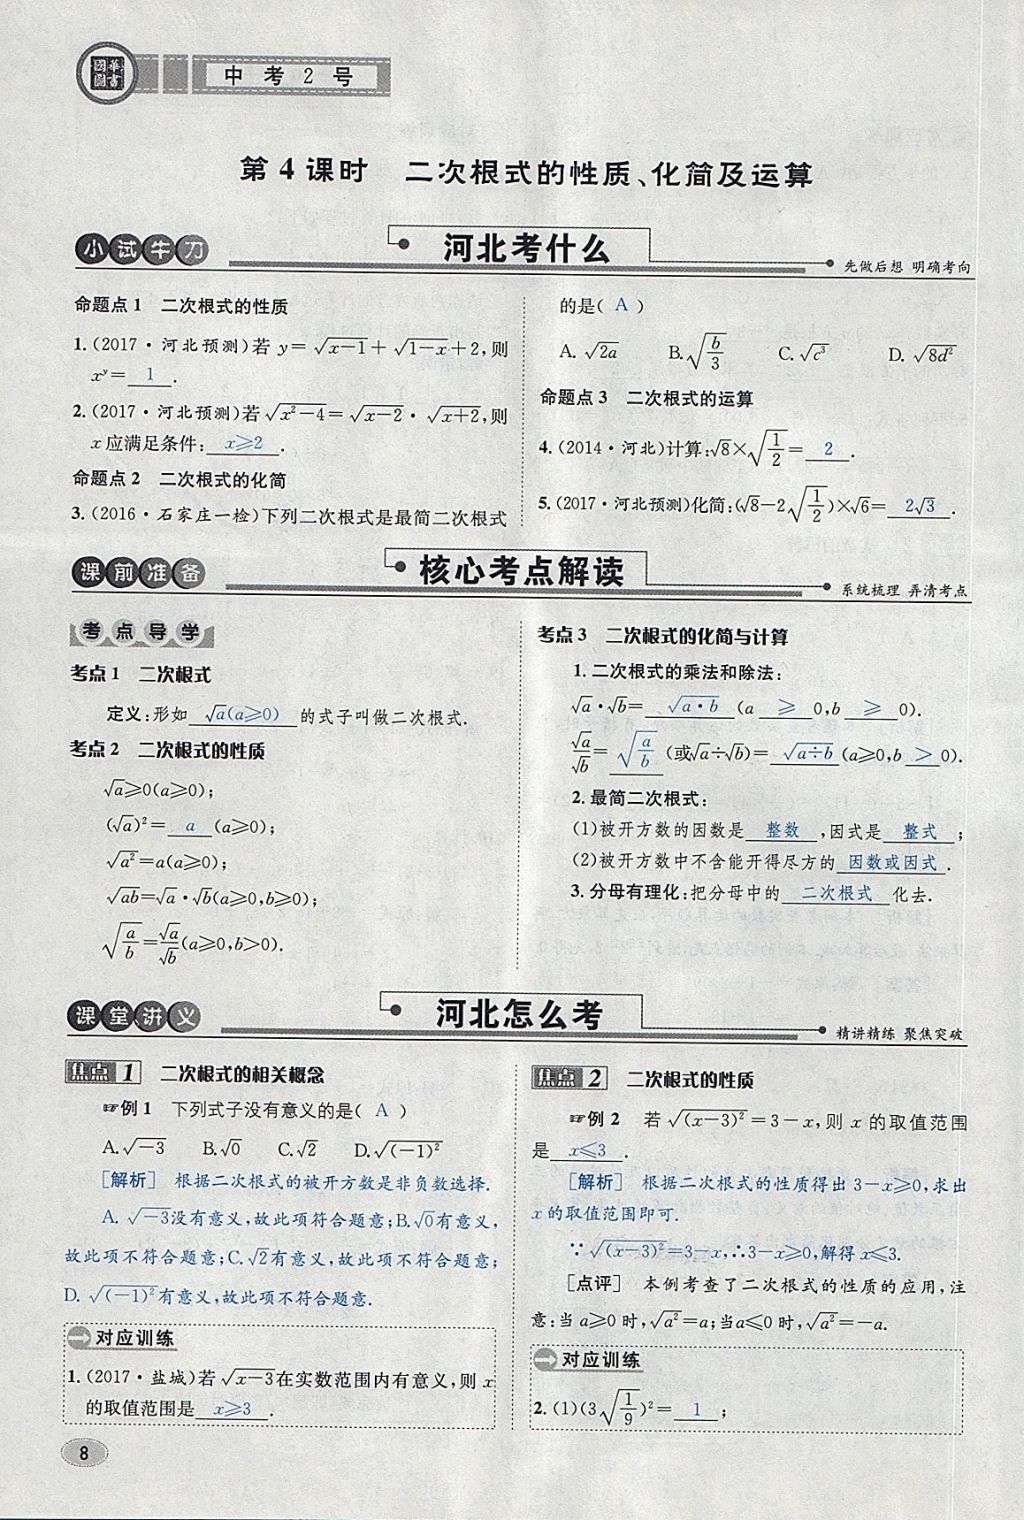 國華圖書
中考2号
第4课时 二次根式的性质、化简及运算
小试牛刀 河北考什么 先做后想 明确考向
命题点1 二次根式的性质
1.(2017·河北预测)若 y=√(x-1)+√(1-x)+2,则
xʸ= 1 .
2.(2017·河北预测)若√(x²-4)=√(x-2)·√(x+2),则
x应满足条件: x≥2 .
命题点2 二次根式的化简
3.(2016·石家庄一检)下列二次根式是最简二次根式
的是( A )
A.√(2a) B.√(b/3) C.√(c³) D.√(8d²)
命题点3 二次根式的运算
4.(2014·河北)计算:√8×√(1/2)= 2 .
5.(2017·河北预测)化简:(√8-2√(1/2))×√6= 2√3 .
课前准备 核心考点解读 系统梳理 弄清考点
考点导学
考点1 二次根式
定义:形如 √a(a≥0) 的式子叫做二次根式.
考点2 二次根式的性质
√a≥0(a≥0);
(√a)²= a (a≥0);
√(a²)=a(a≥0);
√(ab)=√a·√b(a≥0,b≥0);
√(a/b)=√a/√b(a≥0,b>0).
考点3 二次根式的化简与计算
1.二次根式的乘法和除法:
√a·√b= √(a·b) (a ≥ 0,b ≥ 0).
√a/√b= √(a/b) (或√a÷√b)= √(a÷b) (a≥0,b > 0).
2.最简二次根式:
(1)被开方数的因数是 整数 ,因式是 整式 ;
(2)被开方数中不含能开得尽方的 因数或因式 .
3.分母有理化:把分母中的 二次根式 化去.
课堂讲义 河北怎么考 精讲精练 聚焦突破
焦点1 二次根式的相关概念
☞例1 下列式子没有意义的是( A )
A.√(-3) B.√0 C.√2 D.√((-1)²)
[解析] 根据二次根式的被开方数是非负数选择.
A.√(-3)没有意义,故此项符合题意;B.√0有意义,
故此项不符合题意;C.√2有意义,故此项不符合题意;
D.√((-1)²)有意义,故此项不符合题意.
对应训练
1.(2017·盐城)若√(x-3)在实数范围内有意义,则x
的取值范围是 x≥3 .
焦点2 二次根式的性质
☞例2 若√((x-3)²)=3-x,则x的取值范围
是 x≤3 .
[解析] 根据二次根式的性质得出3-x≥0,求出
x的取值范围即可.
∵√((x-3)²)=3-x,∴3-x≥0,解得x≤3.
[点评] 本例考查了二次根式的性质的应用,注
意:当a≥0时,√(a²)=a;当a≤0时,√(a²)=-a.
对应训练
2.(1)(3√(1/9))²= 1 ;
8